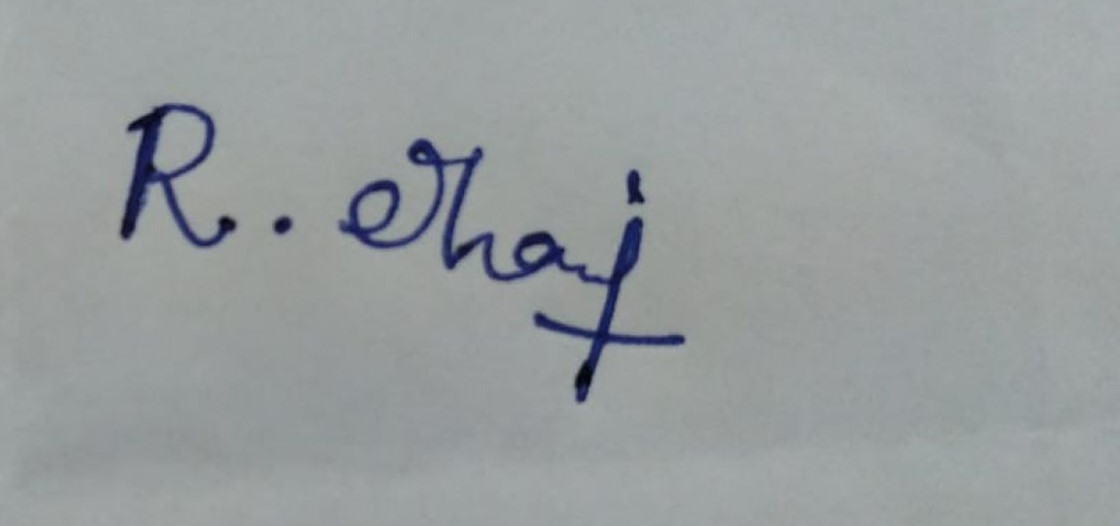 R.. Thaj